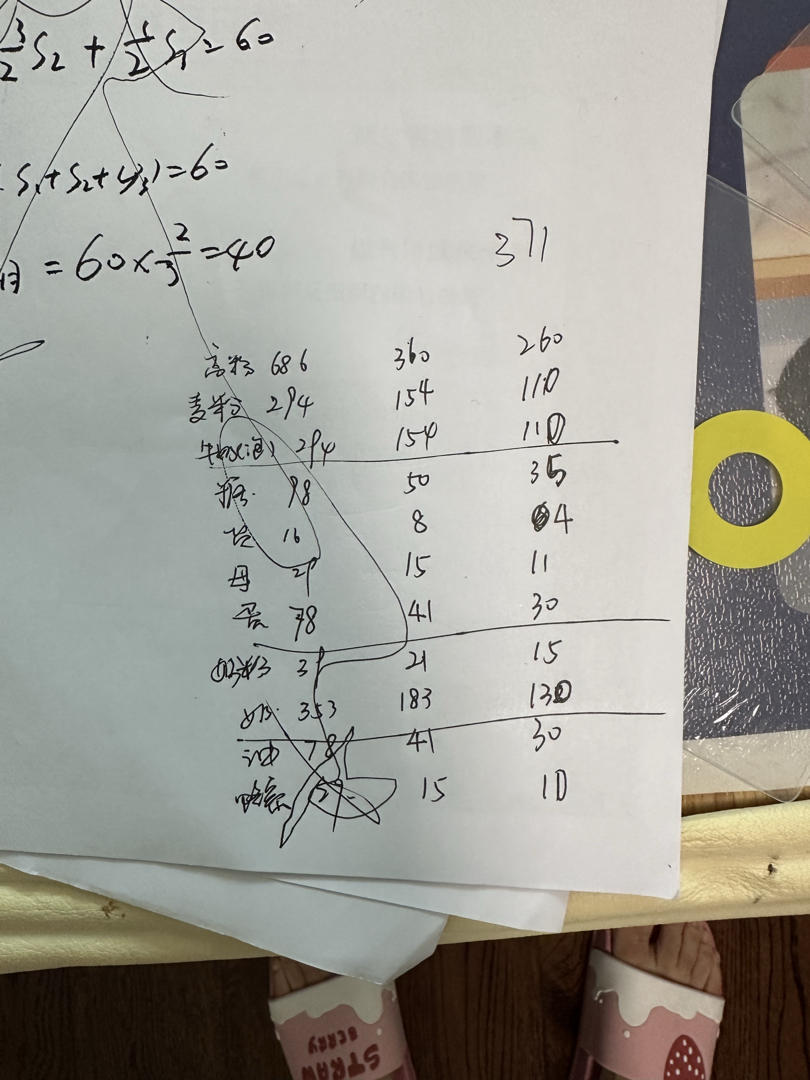 3/2 S₂ + 1/2 S₁ = 60
S₁+S₂+S₃)=60
= 60 × 2/3 = 40
371
高粉 686 360 260
294 154 110
294 154 110
糖 98 50 35
盐 16 8 4
母 29 15 11
蛋 78 41 30
奶粉 39 21 15
奶 353 183 130
油 78 41 30
15 10
STRAW
BERRY